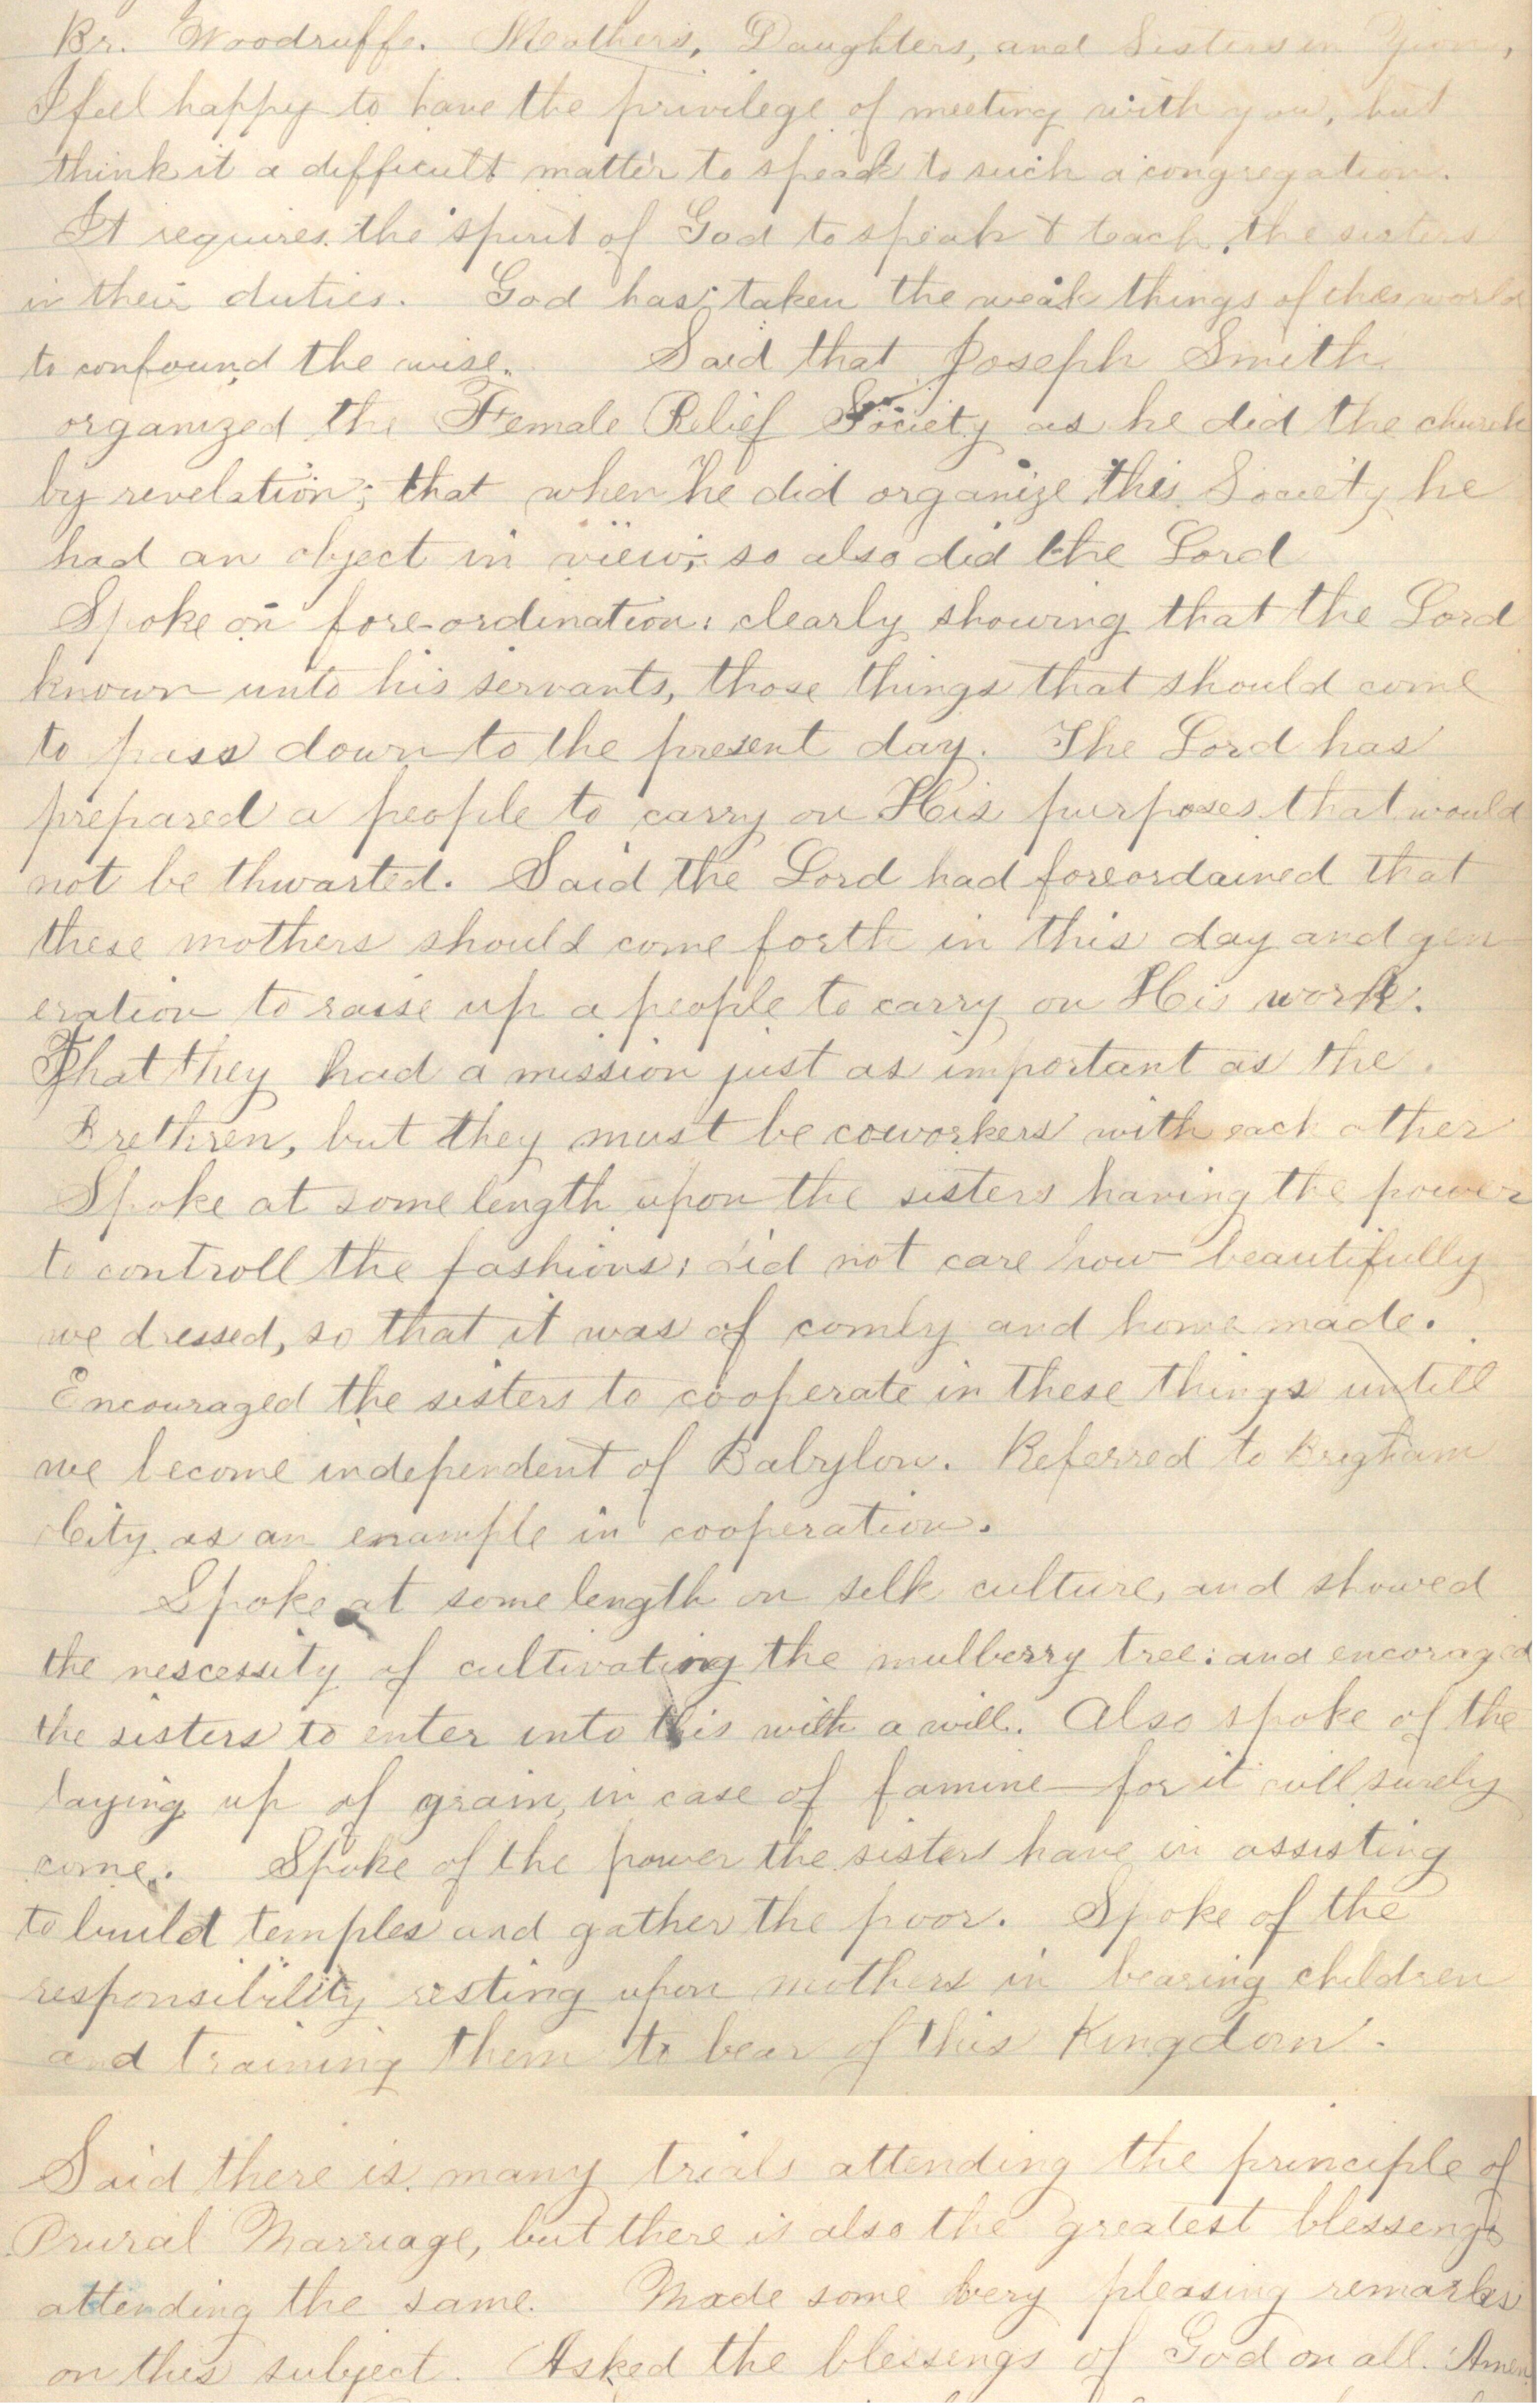 Br. Woodruff. Mothers, Daughters, and Sisters in Zion,
I feel happy to have the privilege of meeting with you, but
think it a difficult matter to speak to such a congregation.
It requires the spirit of God to speak & teach the sisters
in their duties. God has taken the weak things of the world
to confound the wise. Said that Joseph Smith
organized the Female Relief Society as he did the church
by revelation; that when he did organize this Society he
had an object in view; so also did the Lord
Spoke on fore-ordination: clearly showing that the Lord
known unto his servants, those things that should come
to pass down to the present day. The Lord has
prepared a people to carry on His purposes that would
not be thwarted. Said the Lord had foreordained that
these mothers should come forth in this day and gen
eration to raise up a people to carry on His work.
That they had a mission just as important as the
Brethren, but they must be coworkers with each other
Spoke at some length upon the sisters having the power
to controll the fashions; did not care how beautifully
we dressed, so that it was of comly and home made.
Encouraged the sisters to cooperate in these things untill
we become independent of Babylon. Referred to Brigham
City as an example in cooperation.
Spoke at some length on silk culture, and showed
the nescessity of cultivating the mulberry tree: and encoraged
the sisters to enter into this with a will. Also spoke of the
laying up of grain, in case of famine—for it will surely
come. Spoke of the power the sisters have in assisting
to build temples and gather the poor. Spoke of the
responsibility resting upon mothers in bearing children
and training them to bear of this Kingdom.
Said there is many trials attending the principle of
Prural Marriage, but there is also the greatest blessengs
attending the same. Made some very pleasing remarks
on this subject. Asked the blessengs of God on all. Amen